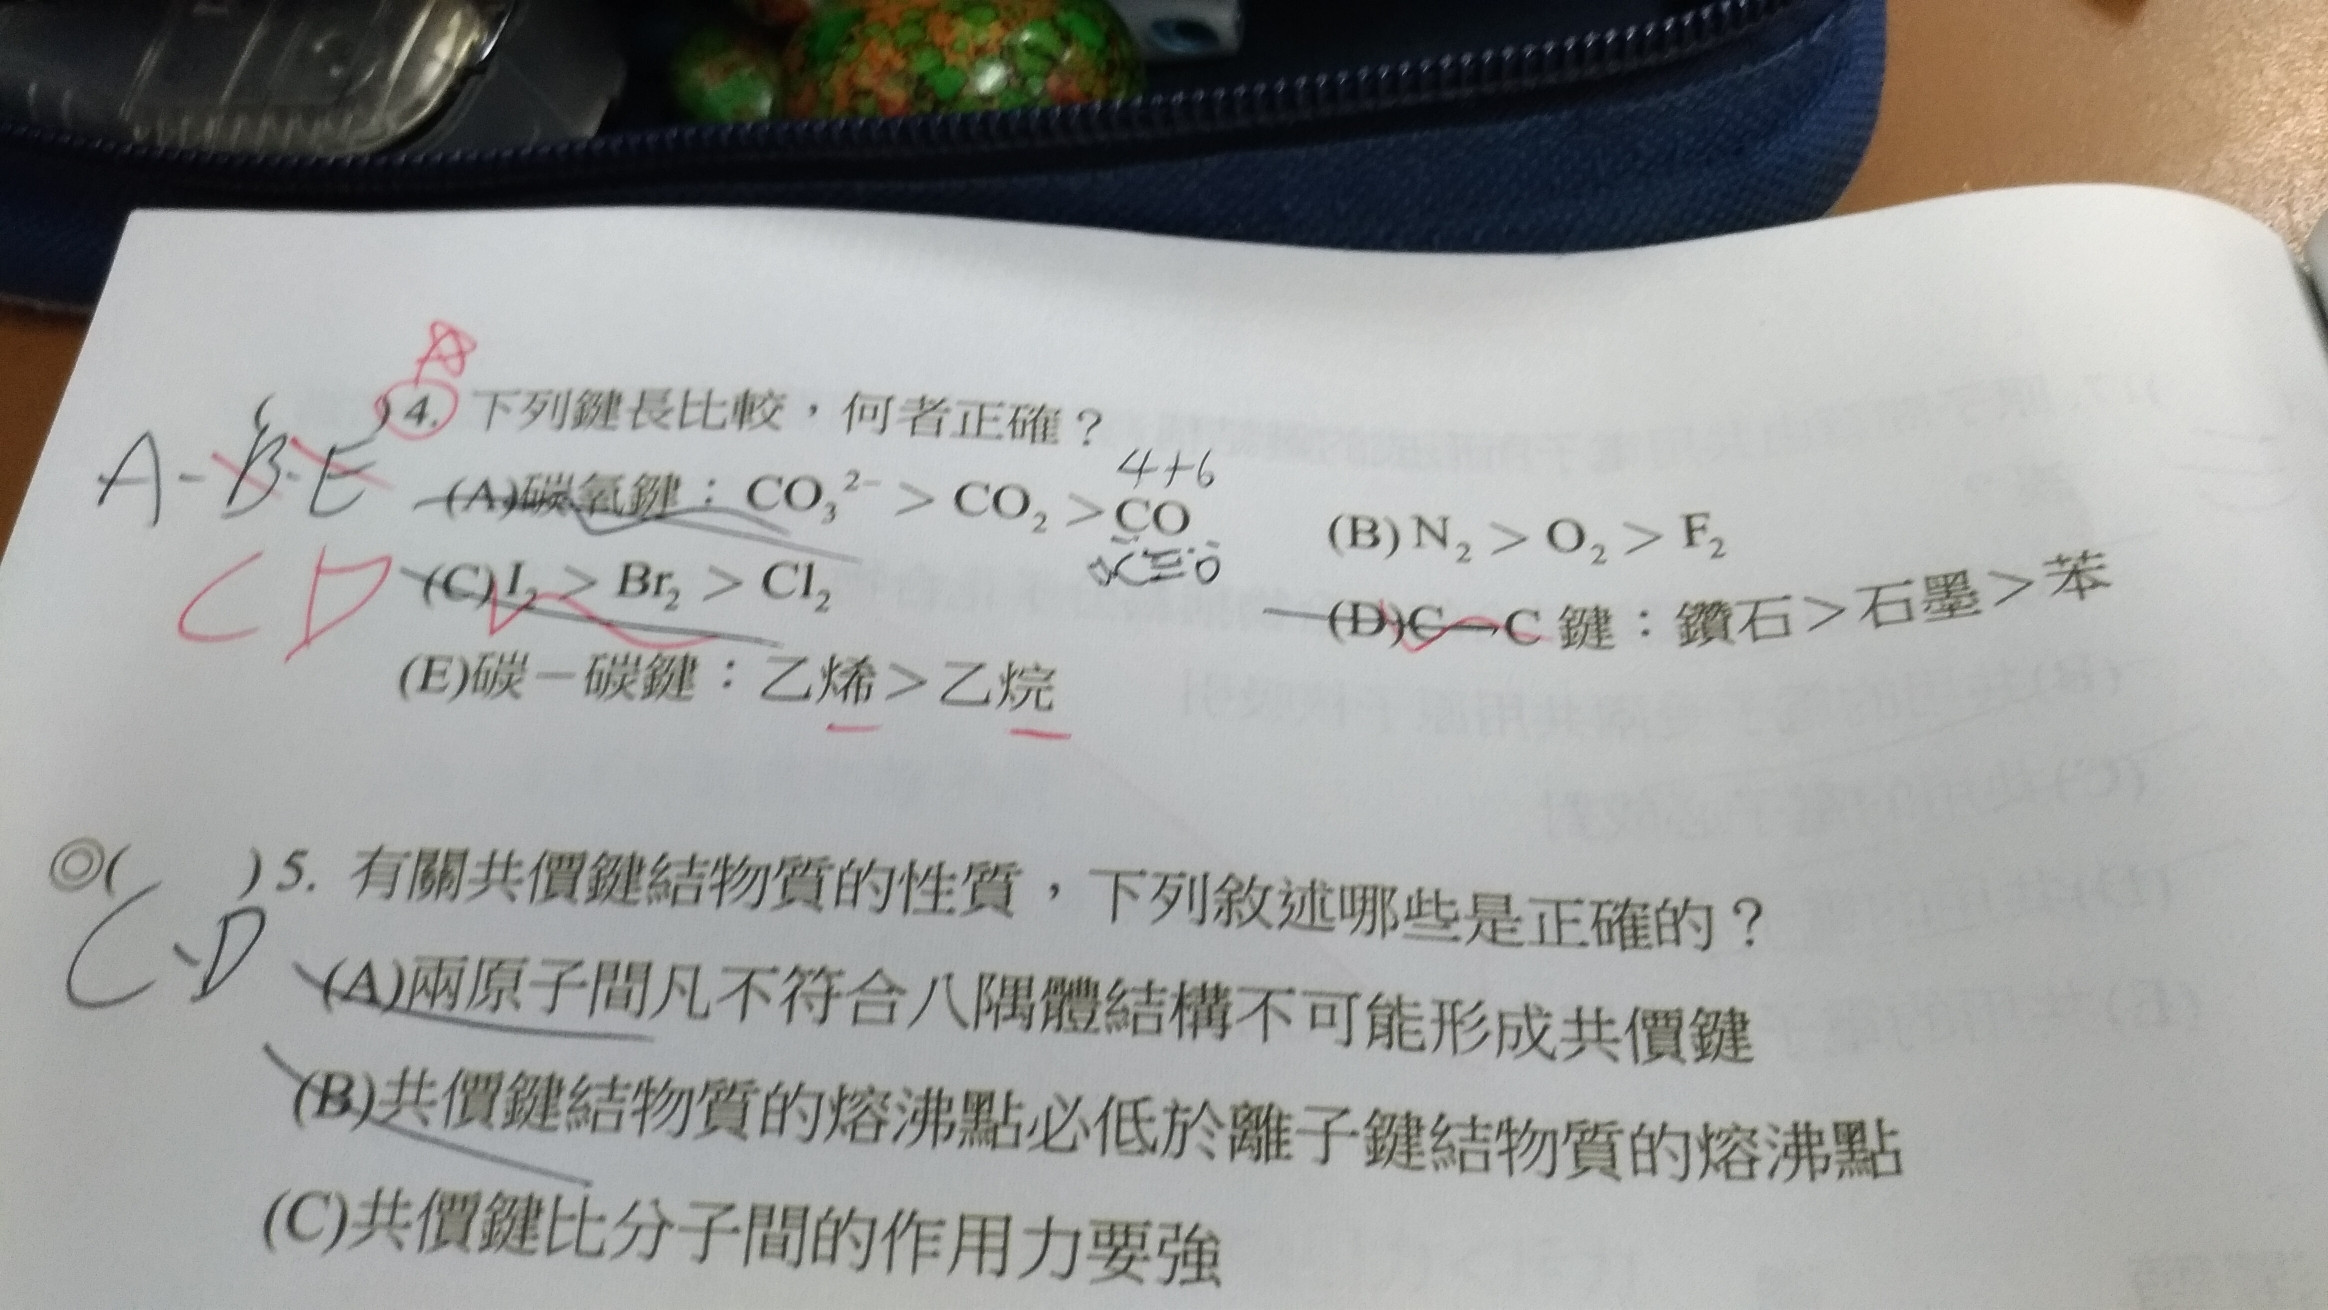 ( )4. 下列鍵長比較，何者正確？
A-B-E
4+6
(A)碳氧鍵：CO₃²⁻ > CO₂ > CO (B) N₂ > O₂ > F₂
C≡O
CD
(C) I₂ > Br₂ > Cl₂ (D)C—C 鍵：鑽石>石墨>苯
(E)碳－碳鍵：乙烯>乙烷
◎( )5. 有關共價鍵結物質的性質，下列敘述哪些是正確的？
C-D
(A)兩原子間凡不符合八隅體結構不可能形成共價鍵
(B)共價鍵結物質的熔沸點必低於離子鍵結物質的熔沸點
(C)共價鍵比分子間的作用力要強